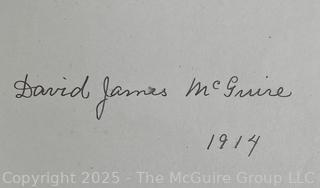 David James McGuire
1914
Copyright 2025 - The McGuire Group LLC